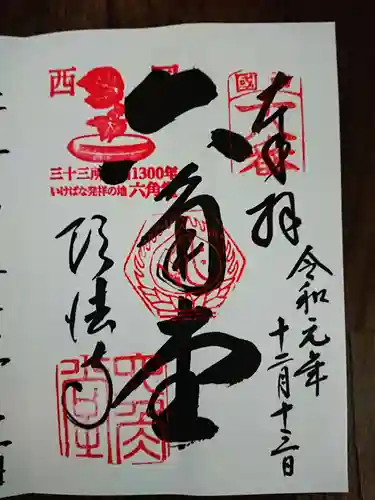 奉拝
令和元年
十二月十三日
六角堂
頂法寺
西国
三十三所
1300年
いけばな発祥の地 六角堂